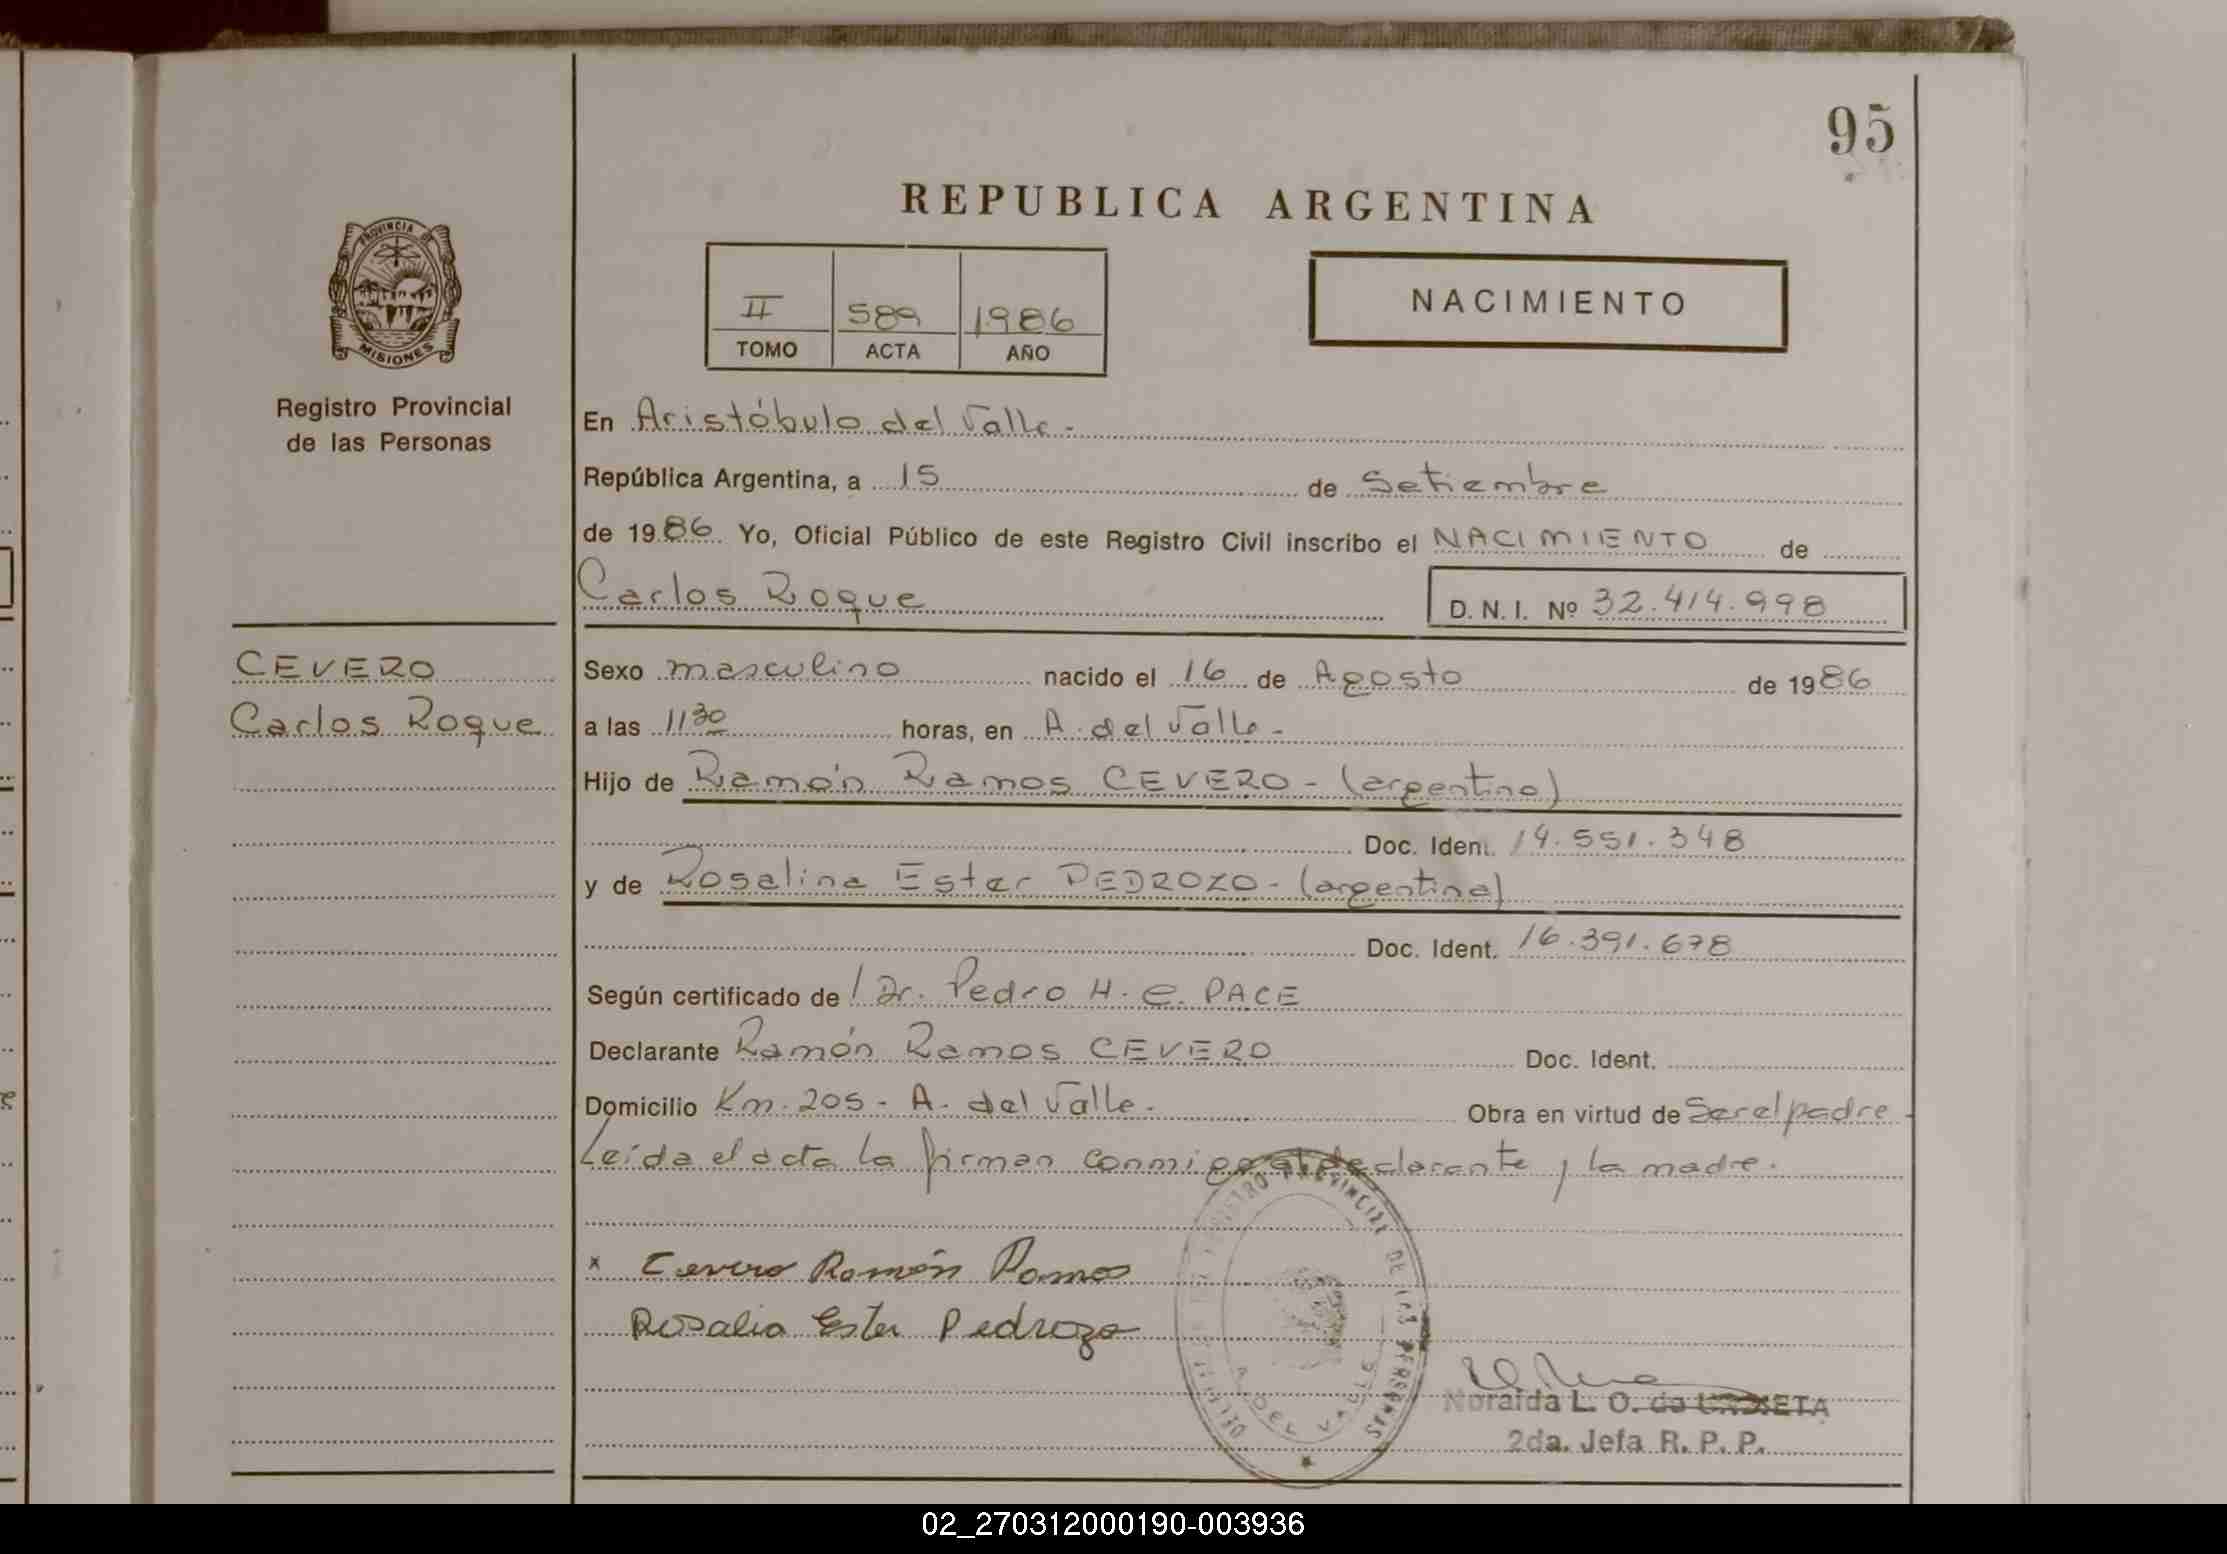 95
REPUBLICA ARGENTINA
PROVINCIA DE
MISIONES
II 589 1986
TOMO ACTA AÑO
NACIMIENTO
Registro Provincial
de las Personas
CEVERO
Carlos Roque
En Aristóbulo del Valle.-
República Argentina, a 15 de Setiembre
de 1986 Yo, Oficial Público de este Registro Civil inscribo el NACIMIENTO de
Carlos Roque D. N. I. Nº 32.414.998
Sexo masculino nacido el 16 de Agosto de 1986
a las 11 30 horas, en A. del Valle.-
Hijo de Ramón Ramos CEVERO - (argentino)
Doc. Ident. 14.551.348
y de Rosalina Ester PEDROZO - (argentina)
Doc. Ident. 16.391.678
Según certificado de Dr. Pedro H. C. PACE
Declarante Ramón Ramos CEVERO Doc. Ident.
Domicilio Km. 205 - A. del Valle.- Obra en virtud de Ser el padre.-
Leída el acta la firman conmigo el declarante y la madre.
x Cevero Ramón Ramos
Rosalia Ester Pedrozo
REGISTRO PROVINCIAL DE LAS PERSONAS
A. DEL VALLE
Noraida L. O. de URDIETA
2da. Jefa R. P. P.
02_270312000190-003936